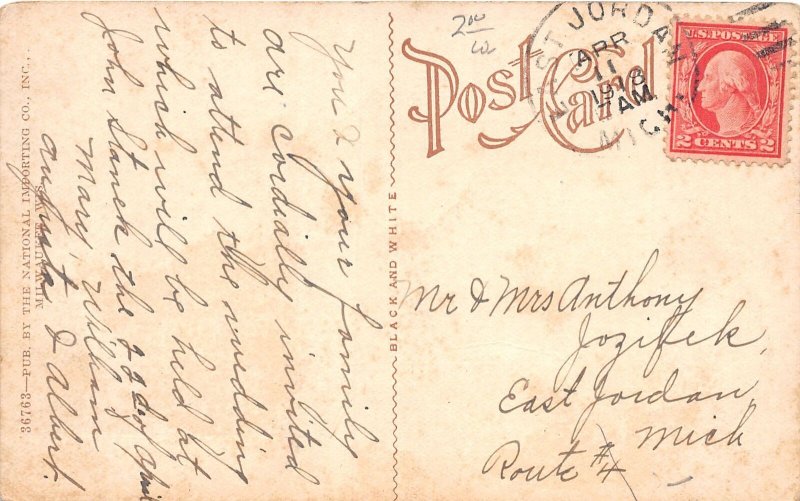 You & your family
are cordially invited
to attend the wedding
which will be held at
John Stanek the 22d of April
Mary, William
Augusta & Albert.
36763—PUB. BY THE NATIONAL IMPORTING CO., INC.,
MILWAUKEE, WIS.
BLACK AND WHITE
Post Card
2 00
EAST JORDAN
APR
11
1918
AM
MICH.
U.S. POSTAGE
2 CENTS 2
Mr & Mrs Anthony
Jozifek,
East Jordan,
Mich
Route #4